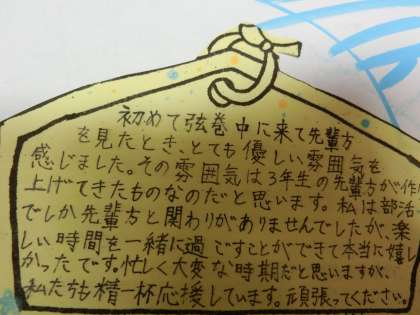 初めて弦巻中に来て先輩方
を見たとき、とても優しい雰囲気を
感じました。その雰囲気は3年生の先輩方が作
上げてきたものなのだと思います。私は部活
でしか先輩方と関わりがありませんでしたが、楽
しい時間を一緒に過ごすことができて本当に嬉し
かったです。忙しく大変な時期だと思いますが、
私たちも精一杯応援しています。頑張ってください。